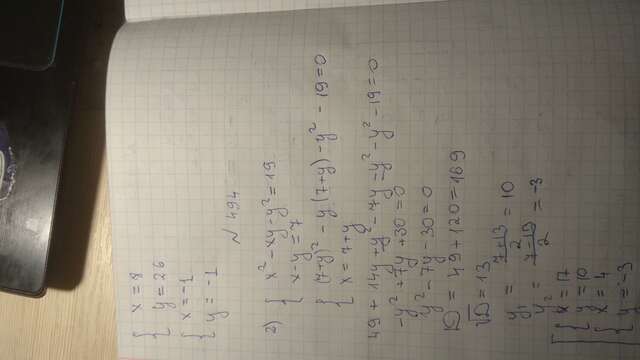 { x = 8
y = 26
{ x = -1
y = -1
№ 494
2) { x² - xy - y² = 19
x - y = 7
{ (7+y)² - y(7+y) - y² - 19 = 0
x = 7 + y
49 + 14y + y² - 7y - y² - y² - 19 = 0
-y² + 7y + 30 = 0
y² - 7y - 30 = 0
D = 49 + 120 = 169
√D = 13
y₁ = (7+13)/2 = 10
y₂ = (7-13)/2 = -3
[ { x = 17
y = 10
{ x = 4
y = -3